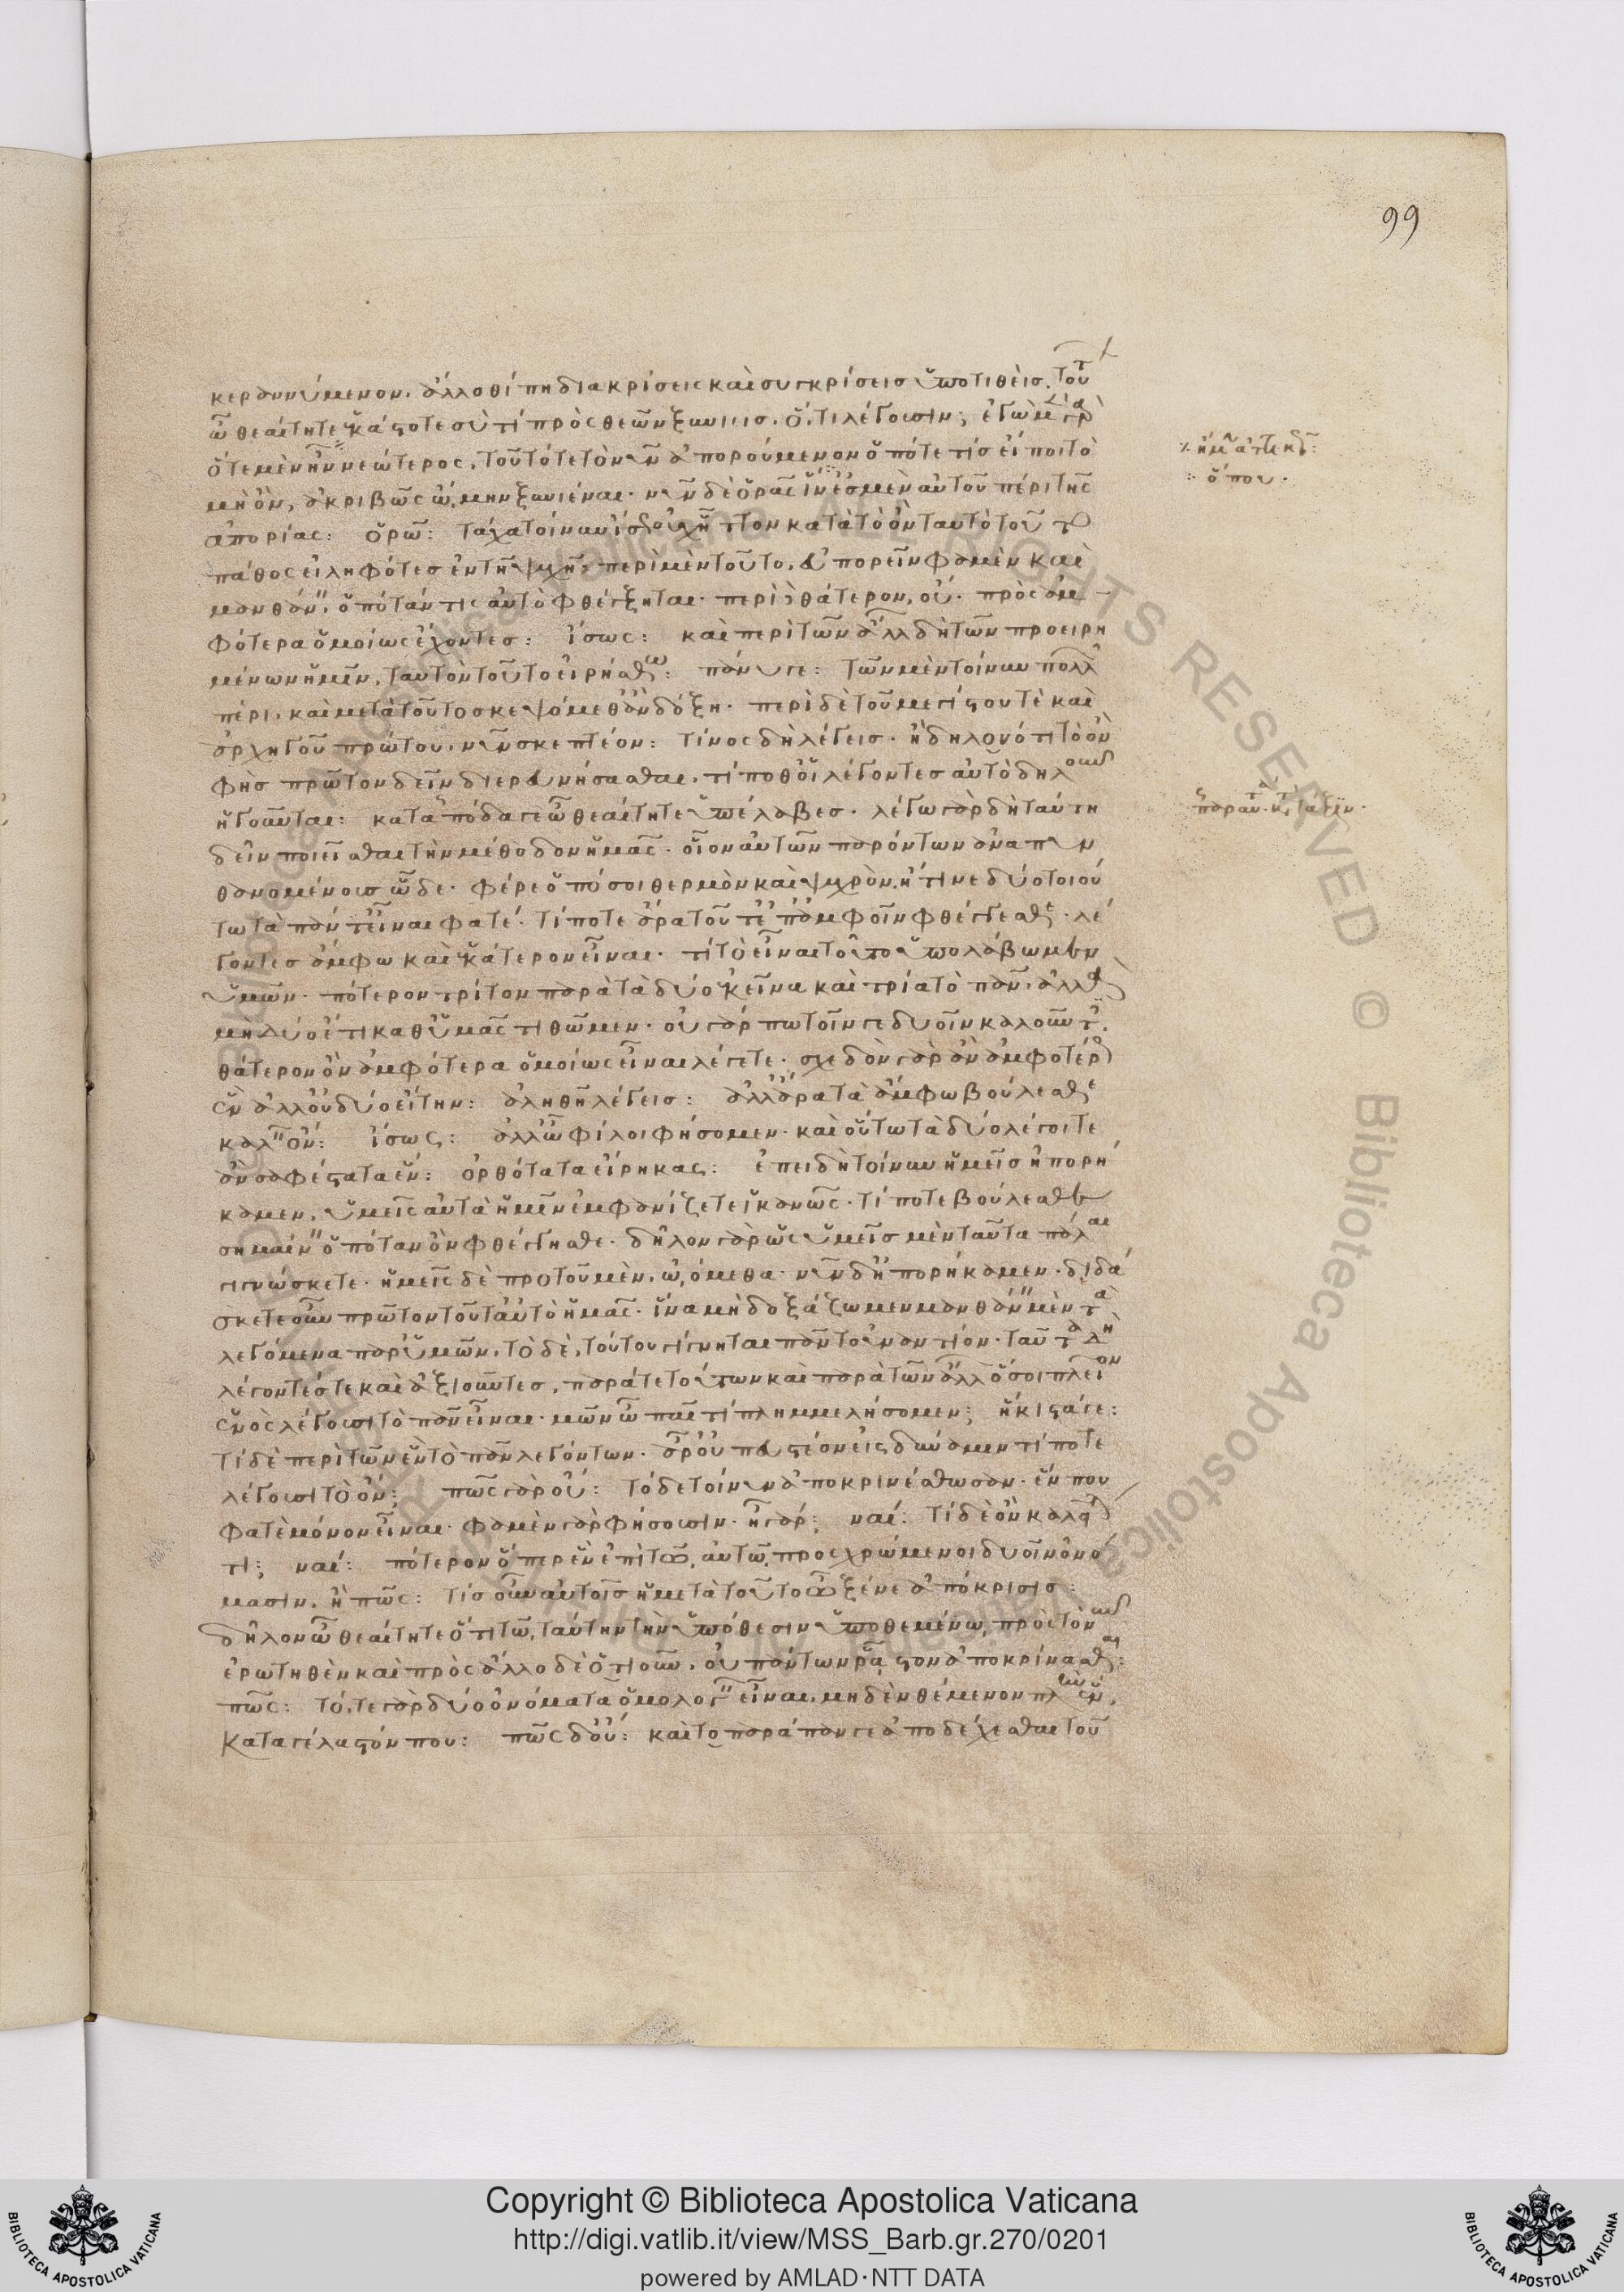 99
κεραννύμενον. ἄλλοθί πη διακρίσεις καὶ συγκρίσεις ὑποτιθείς. τούτ
ὦ θεαίτητε ἑκάστοτε σὺ τί πρὸς θεῶν ξυνίης. ὅ,τι λέγουσιν; ἐγὼ μ γὰρ
ὅτε μὲν ἦν νεώτερος, τοῦτό τε τὸ νῦν ἀπορούμενον ὁπότε τίς εἴποι τὸ
μὴ ὄν, ἀκριβῶς ᾤμην ξυνιέναι. νῦν δὲ ὁρᾷς ἵν' ἐσμὲν αὐτοῦ πέρι τῆς
ἀπορίας: ὁρῶ: τάχα τοίνυν ἴσως οὐχ ἧττον κατὰ τὸ ὂν ταυτὸ τοῦτο
πάθος εἰληφότες ἐν τῇ ψυχῇ, περὶ μὲν τοῦτο, εὐπορεῖν φαμὲν καὶ
μανθάνειν, ὁπόταν τις αὐτὸ φθέγξηται. περὶ δὲ θάτερον, οὔ. πρὸς ἀμ-
φότερα ὁμοίως ἔχοντες: ἴσως: καὶ περὶ τῶν ἄλλ δὴ τῶν προειρη
μένων ἡμῖν, ταυτὸν τοῦτο εἰρήσθω: πάνυ γε: τῶν μὲν τοίνυν πολλ
πέρι, καὶ μετὰ τοῦτο σκεψόμεθ' ἂν δόξῃ. περὶ δὲ τοῦ μεγίστου τὲ καὶ
ἀρχηγοῦ πρώτου, νῦν σκεπτέον: τίνος δὴ λέγεις. ἢ δῆλον ὅτι τὸ ὂν
φὴς πρῶτον δεῖν διερευνήσασθαι, τί ποθ' οἱ λέγοντες αὐτὸ δηλοῦν
ἡγοῦνται: κατὰ πόδα γε ὦ θεαίτητε ὑπέλαβες. λέγω γὰρ δὴ ταύτη
δεῖν ποιεῖσθαι τὴν μέθοδον ἡμᾶς. οἷον αὐτῶν παρόντων ἀναπυν
θανομένοις ὧδε. φέρε ὁπόσοι θερμὸν καὶ ψυχρὸν, ἤ τινε δύο τοιού
τω τὰ πάντ' εἶναι φατέ. τί ποτε ἄρα τοῦτ' ἐπ' ἀμφοῖν φθέγγεσθε. λέ
γοντες ἄμφω καὶ ἑκάτερον εἶναι. τί τὸ εἶναι τοῦτο ὑπολάβωμεν
ὑμῶν. πότερον τρίτον παρὰ τὰ δύο 'κεῖνα καὶ τρία τὸ πᾶν, ἀλλὰ
μὴ δύο ἔτι καθ' ὑμᾶς τιθῶμεν. οὐ γάρ που τοῖν γε δυοῖν καλοῦντ.
θάτερον ὂν ἀμφότερα ὁμοίως εἶναι λέγετε. σχεδὸν γὰρ ἂν ἀμφοτέρως
ἓν ἀλλ' οὐ δύο εἴτην: ἀληθῆ λέγεις: ἀλλ' ἄρα τὰ ἄμφω βούλεσθε
καλεῖν ὄν: ἴσως: ἀλλ' ὦ φίλοι φήσομεν. καὶ οὕτω τὰ δύο λέγοιτε
ἂν σαφέστατα ἕν: ὀρθότατα εἴρηκας: ἐπειδὴ τοίνυν ἡμεῖς ἠπορή
καμεν, ὑμεῖς αὐτὰ ἡμῖν ἐμφανίζετε ἱκανῶς. τί ποτε βούλεσθε
σημαίνειν ὁπόταν ὂν φθέγγησθε. δῆλον γὰρ ὡς ὑμεῖς μὲν ταῦτα πάλαι
γιγνώσκετε. ἡμεῖς δὲ προτοῦ μὲν, ᾠόμεθα. νῦν δ' ἠπορήκαμεν. διδά
σκετε οὖν πρῶτον τοῦτ' αὐτὸ ἡμᾶς. ἵνα μὴ δοξάζωμεν μανθάνειν μὲν τὰ
λεγόμενα παρ' ὑμῶν, τὸ δὲ, τούτου γίγνηται πᾶν τοὐναντίον. ταῦτα δὴ
λέγοντές τε καὶ ἀξιοῦντες, παρά τε τούτων καὶ παρὰ τῶν ἄλλ ὅσοι πλεῖον
ἑνὸς λέγουσι τὸ πᾶν εἶναι. μῶν ὦ παῖ τί πλημμελήσομεν; ἥκιστά γε:
τί δὲ περὶ τῶν ἓν τὸ πᾶν λεγόντων. ἆρ' οὐ πευστέον εἰς δύναμιν τί ποτε
λέγουσι τὸ ὄν; πῶς γὰρ οὔ: τόδε τοίνυν ἀποκρινέσθωσαν. ἕν που
φατὲ μόνον εἶναι. φαμὲν γὰρ φήσουσιν. ἦ γάρ; ναί: τί δὲ ὂν καλεῖτέ
τι; ναί: πότερον ὅπερ ἓν ἐπὶ τῷ αὐτῷ προσχρώμενοι δυοῖν ὀνό
μασιν. ἢ πῶς: τίς οὖν αὐτοῖς ἡ μετὰ τοῦτο ὦ ξένε ἀπόκρισις:
δῆλον ὦ θεαίτητε ὅτι τῷ ταύτην τὴν ὑπόθεσιν ὑποθεμένῳ, πρὸς τὸ νῦν
ἐρωτηθὲν καὶ πρὸς ἄλλο δὲ ὁτιοῦν, οὐ πάντων ῥᾷστον ἀποκρίνασθαι:
πῶς: τό,τε γὰρ δύο ὀνόματα ὁμολογεῖν εἶναι, μηδὲν θέμενον πλὴν ἕν,
καταγέλαστόν που: πῶς δ' οὔ: καὶ τοπαράπαν γε ἀποδέχεσθαι τοῦ
ὅπου.
Copyright © Biblioteca Apostolica Vaticana
http://digi.vatlib.it/view/MSS_Barb.gr.270/0201
powered by AMLAD·NTT DATA
BIBLIOTECA APOSTOLICA VATICANA
BIBLIOTECA APOSTOLICA VATICANA